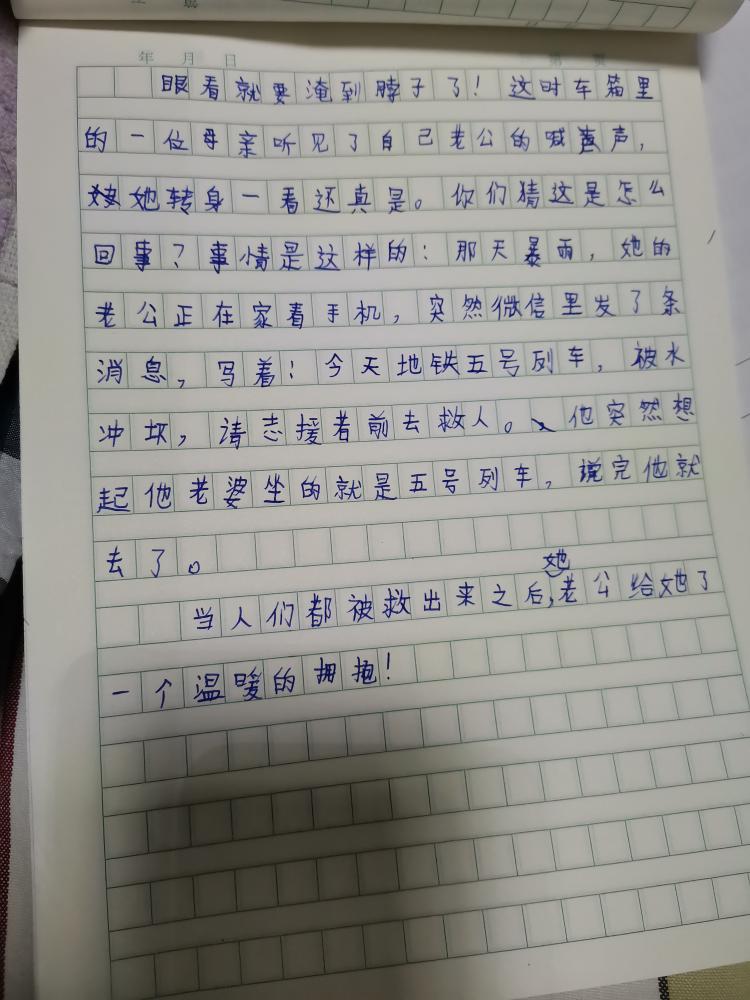 年 月 日 第 页
眼看就要淹到脖子了！这时车箱里
的一位母亲听见了自己老公的喊声，
她转身一看还真是。你们猜这是怎么
回事？事情是这样的：那天暴雨，她的
老公正在家看手机，突然微信里发了条
消息，写着！今天地铁五号列车，被水
冲坏，请志援者前去救人。他突然想
起他老婆坐的就是五号列车，说完他就
去了。
当人们都被救出来之后，她老公给她了
一个温暖的拥抱！